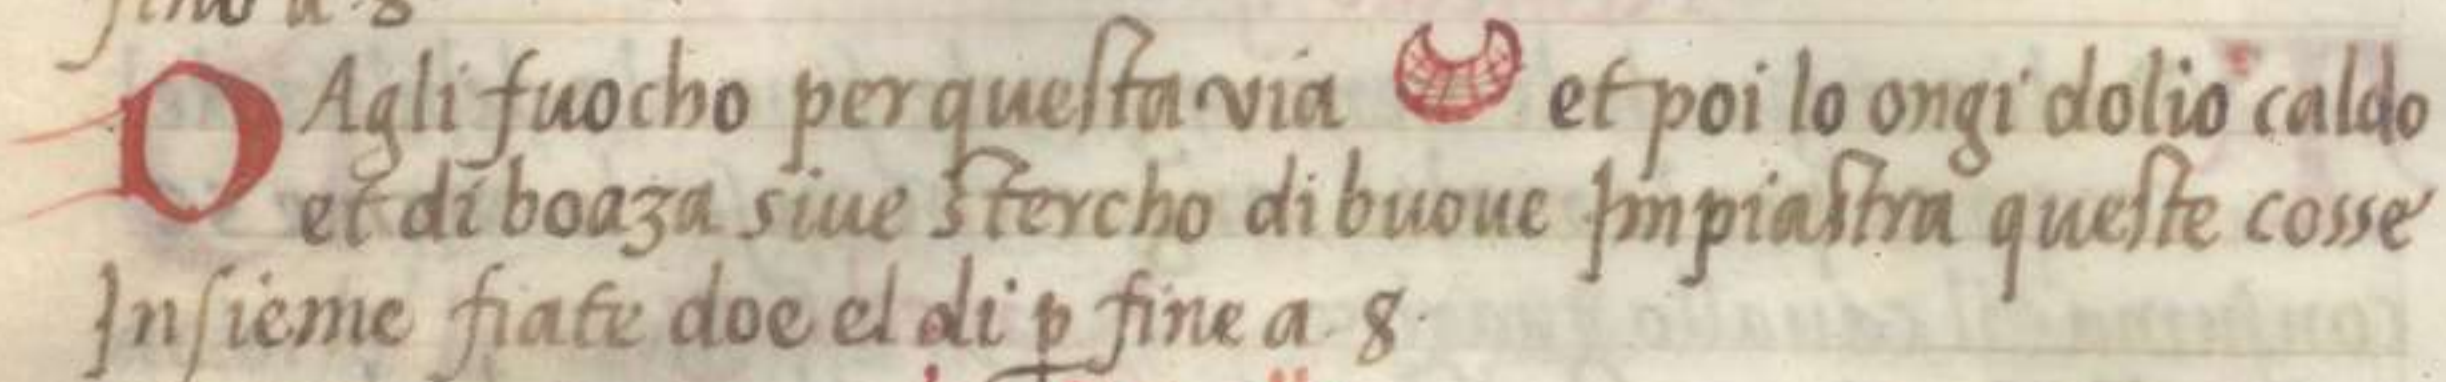 fino a · 8
DAgli fuocho per questa via et poi lo ongi dolio caldo
et di boaza siue stercho di buoue Impiastra queste cosse
Insieme fiate doe el di p fine a · 8 ·